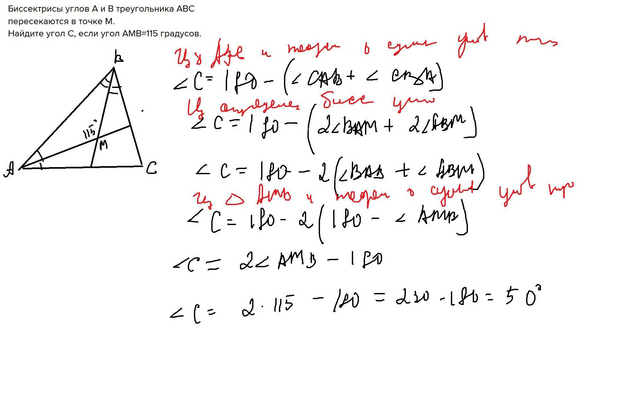 Биссектрисы углов А и В треугольника АВС
пересекаются в точке М.
Найдите угол С, если угол АМВ=115 градусов.
B
115°
M
A
C
Из АВС и теорем о сумм углов
∠C = 180 - (∠CAB + ∠CBA)
Из определен бисс
∠C = 180 - (2∠BAM + 2∠ABM)
∠C = 180 - 2(∠BAM + ∠ABM)
Из △ AMB и теорем о сумм углов тр
∠C = 180 - 2(180 - ∠AMB)
∠C = 2∠AMB - 180
∠C = 2·115 - 180 = 230 - 180 = 50°